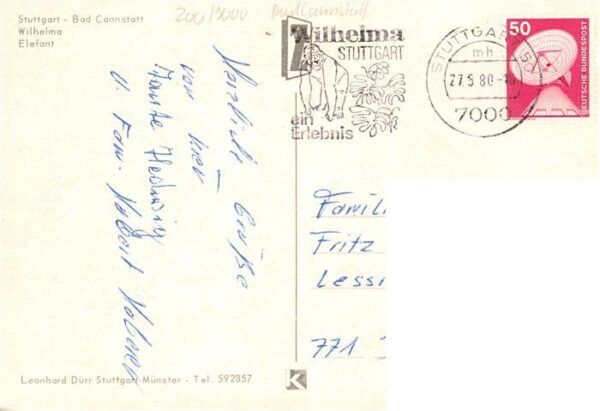 Stuttgart - Bad Cannstatt
Wilhelma
Elefant
200/5000 Bad Cannstatt
Herzliche Grüße
von hier
Tante Hedwig
u. Fam.
Wilhelma
STUTTGART
ein
Erlebnis
STUTTGART 50
mh
27.5.80-16
7000
50
DEUTSCHE BUNDESPOST
Famili
Fritz
Lessi
771
Leonhard Dürr Stuttgart-Münster - Tel. 592857
K